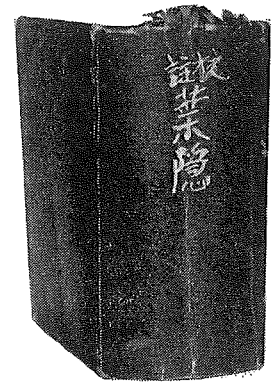 校註葉隠